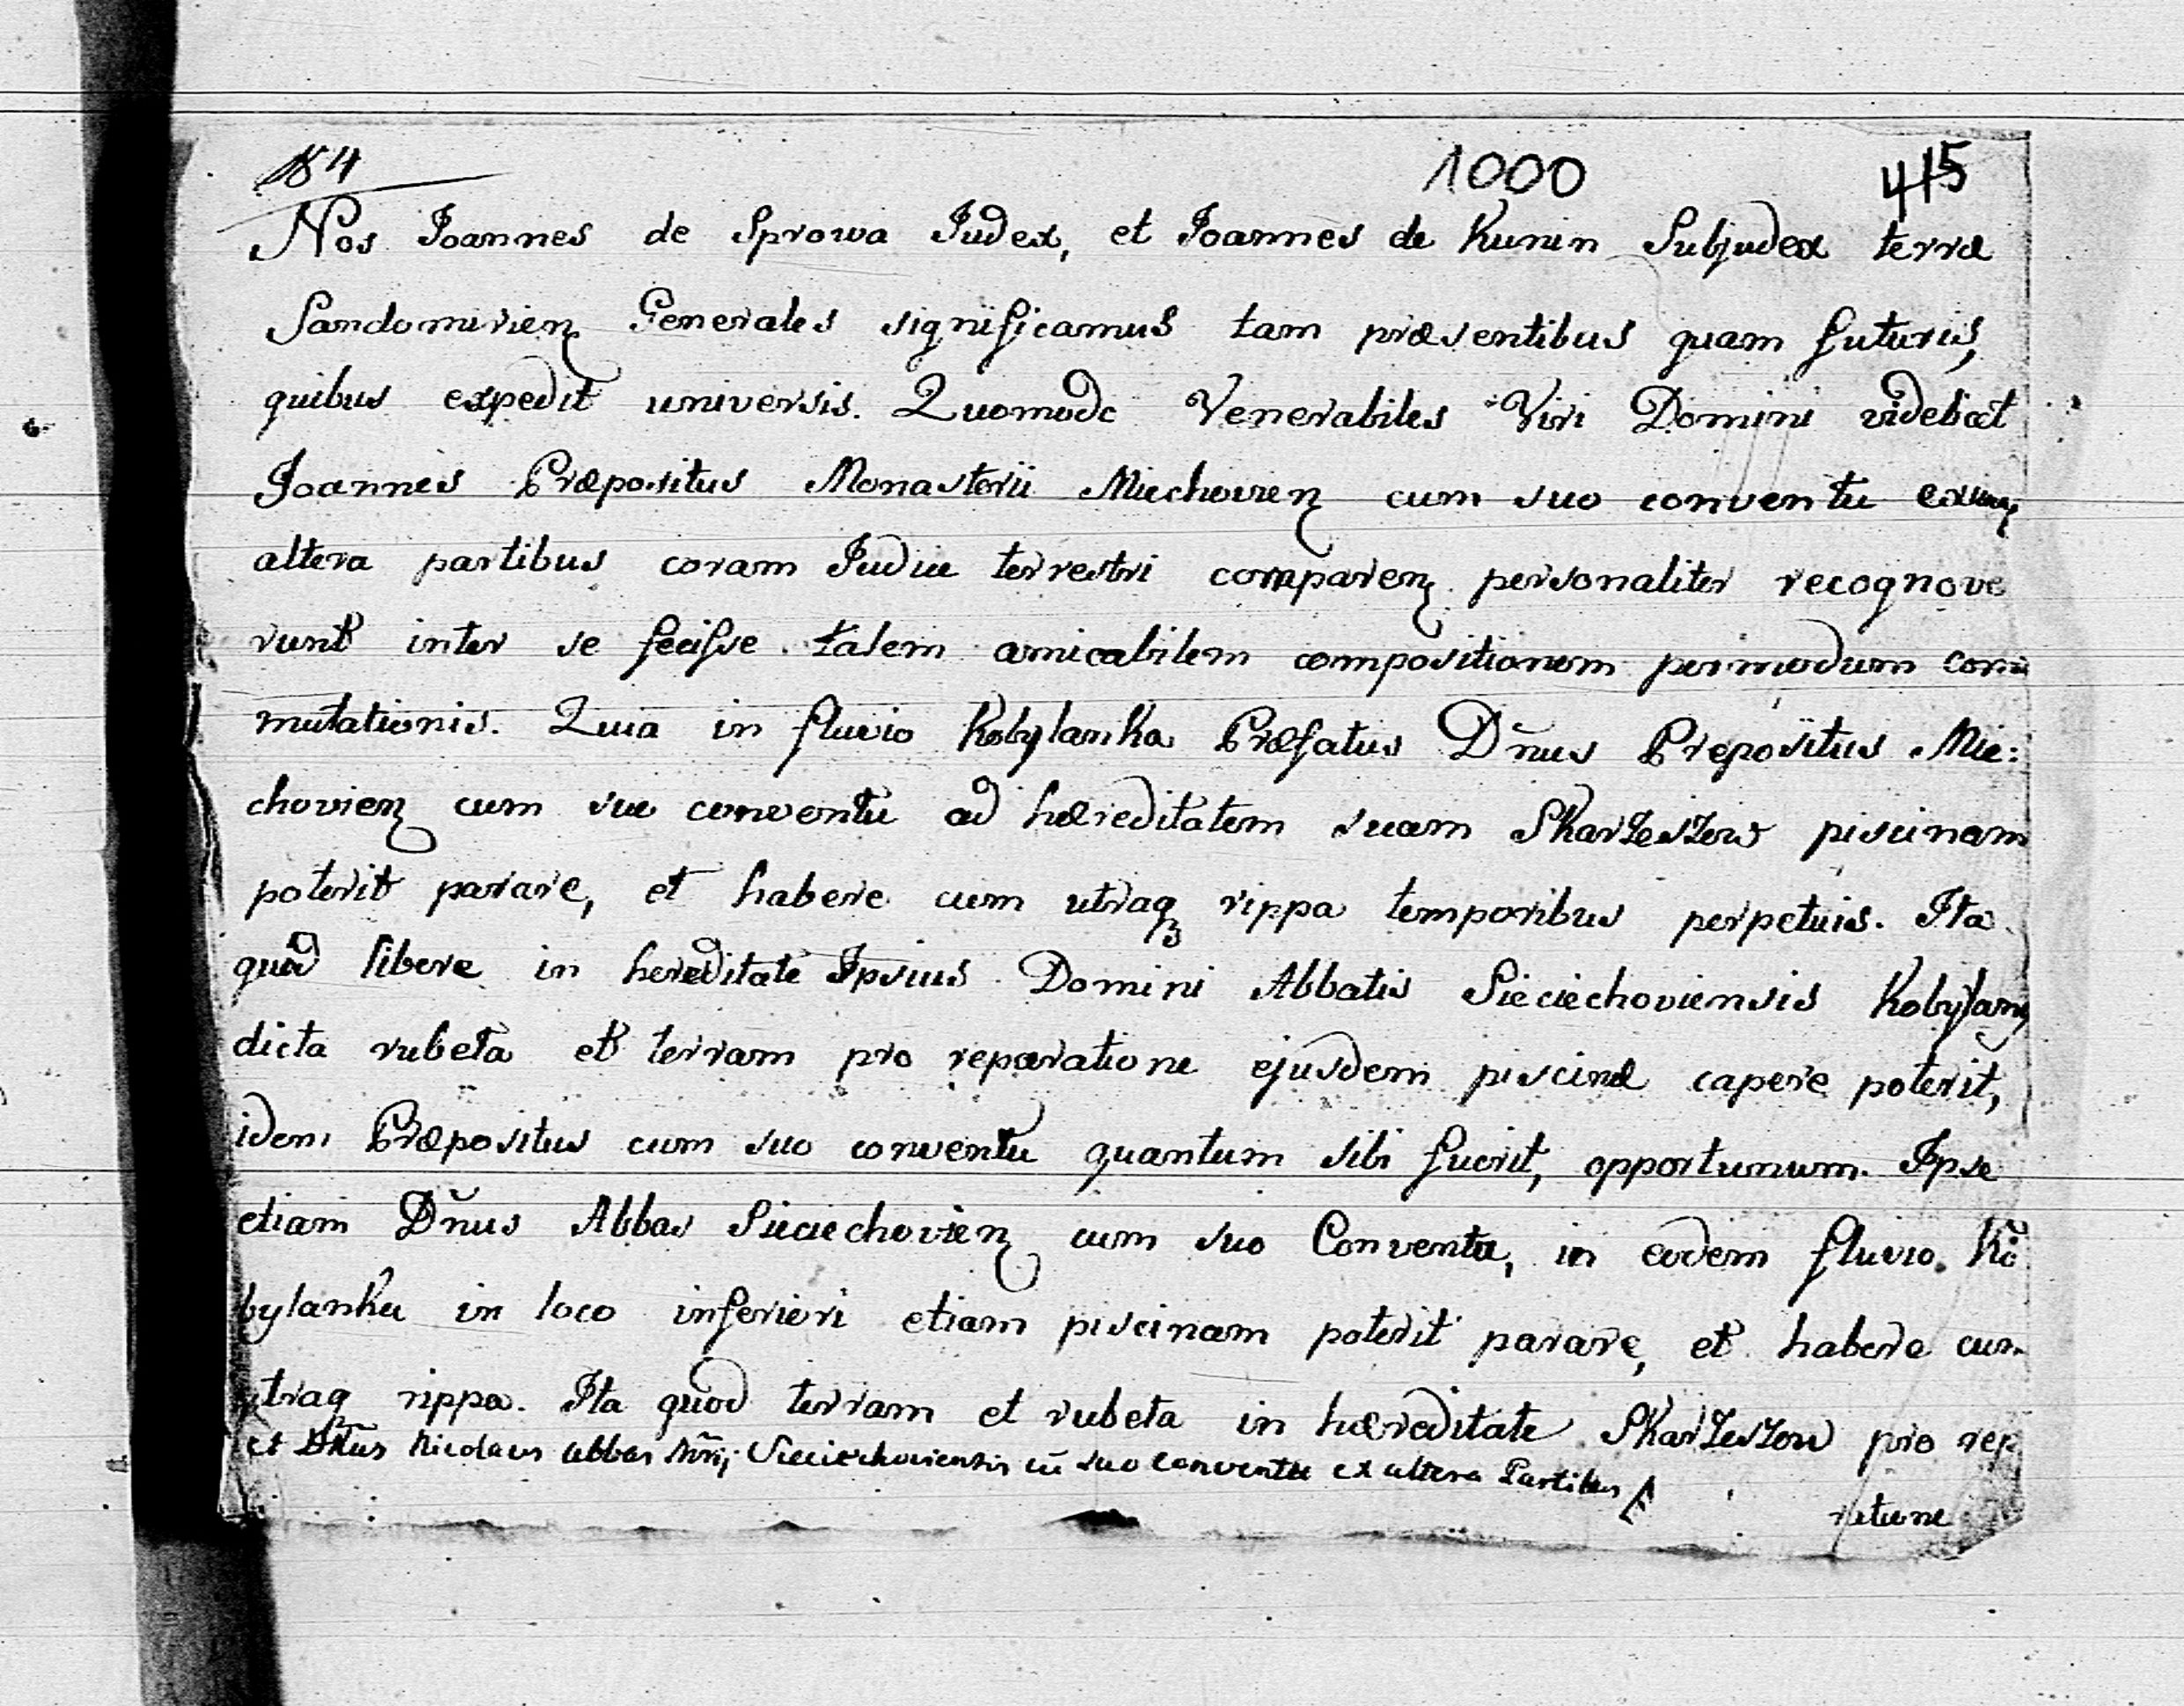 84 1000 415
Nos Joannes de Sprowa Judex, et Joannes de Kunin Subjudex terræ
Sandomirien Generales significamus tam præsentibus quam futuris,
quibus expedit universis. Quomodo Venerabiles Viri Domini videlicet
Joannes Præpositus Monasterii Miechovien cum suo conventu ex una
altera partibus coram Judice terrestri comparen personaliter recognove
runt inter se fecisse talem amicabilem compositionem per modum com
mutationis. Quia in fluvio Kobylanka Præfatus Dñus Prepositus Mie:
chovien cum suo conventu ad hæreditatem suam Skarzeszow piscinam
poterit parare, et habere cum utraq rippa temporibus perpetuis. Ita
quod libere in hereditate Ipsius Domini Abbatis Sieciechoviensis Kobylany
dicta rubeta et terram pro reparatione ejusdem piscinæ capere poterit,
idem Præpositus cum suo conventu quantum sibi fuerit, opportunum. Ipse
etiam Dñus Abbas Sieciechovien cum suo Conventu, in eodem fluvio Ko
bylanka in loco inferiori etiam piscinam poterit parare, et habere cum
utraq rippa. Ita quod terram et rubeta in hæreditate Skarzeszow pro rep
et Dñus Nicolaus abbas Mñrij Sieciechoviensis cū suo conventu ex altera Partibus
ratione